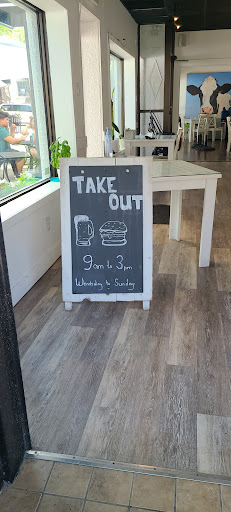 TAKE
OUT
9am to 3pm
Wendsday to Sunday